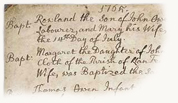 1708
Bapt. Rowland the Son of John Ow
Labourer, and Mary his Wife
the 14th Day of July
Bapt. Margaret the Daughter of Joh
Clerk of the Parish of
Wife, was Baptized the
Thomas Owen Infant